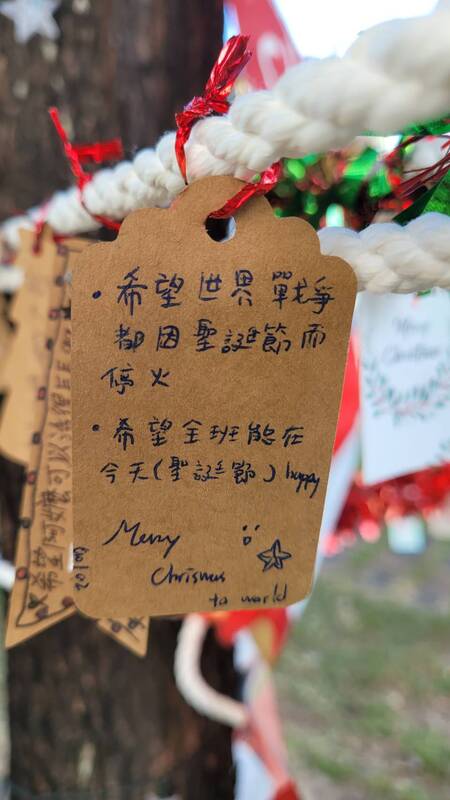 • 希望世界戰爭
都因聖誕節而
停火
• 希望全班能在
今天(聖誕節) happy
Merry
Chrismas
to world
Merry
Christmas